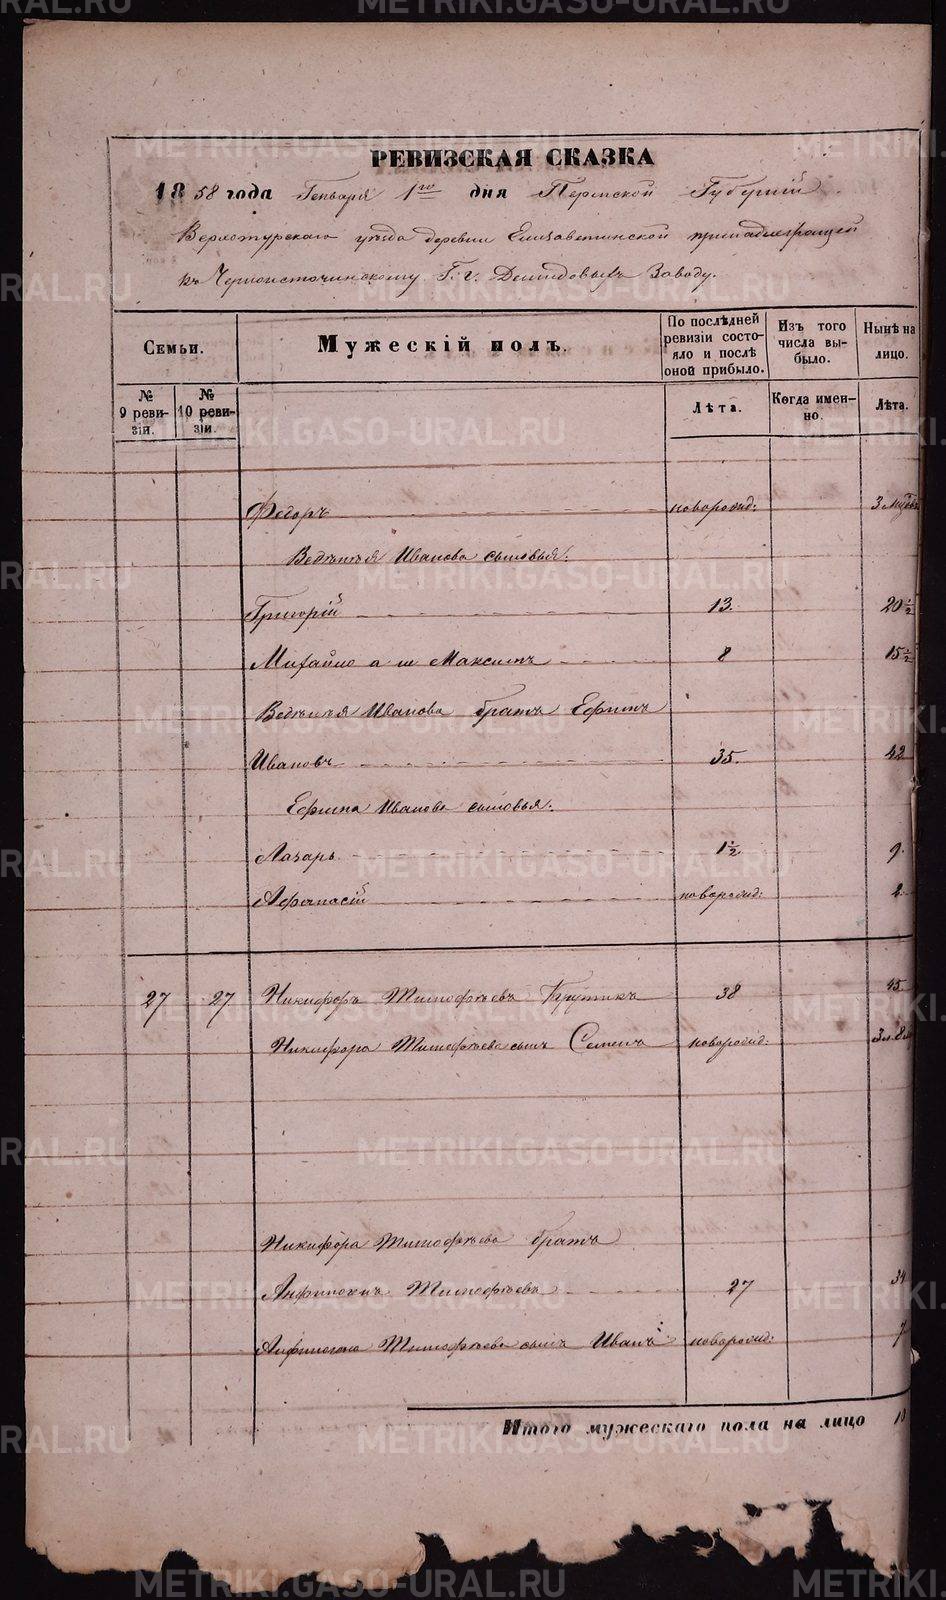 РЕВИЗСКАЯ СКАЗКА
1858 года Генваря 1го дня Пермской Губернiи
Верхотурскаго уѣзда деревни Елизаветинской принадлежащей
къ Черноисточинскому Г. г. Демидовыхъ Заводу.
Семьи.
Мужескiй полъ.
По послѣдней ревизiи состояло и послѣ оной прибыло.
Изъ того числа выбыло.
Нынѣ на лицо.
№ 9 ревизiи.
№ 10 ревизiи.
Лѣта.
Когда именно.
Лѣта.
Федоръ новорожд: 3 мцовъ
Иванова сыновья:
Григорiй 13. 20 ½
Михайло а ш Максимъ 8 15 ½
Иванова братъ Ефимъ
Ивановъ 35. 42
Ефима Иванова сыновья:
Лазарь 1 ½ 9.
Афанасiй новорожд: 2.
27 27 Никифоръ Тимофѣевъ Крутикъ 38 45
Никифора Тимофѣева сынъ Семенъ новорожд: 3 л. 8
Никифора Тимофѣева братъ
Анфиногенъ Тимофѣевъ 27 34
Анфиногена Тимофѣева сынъ Иванъ новорожд: 7
Итого мужескаго пола на лицо 10
METRIKI.GASO-URAL.RU